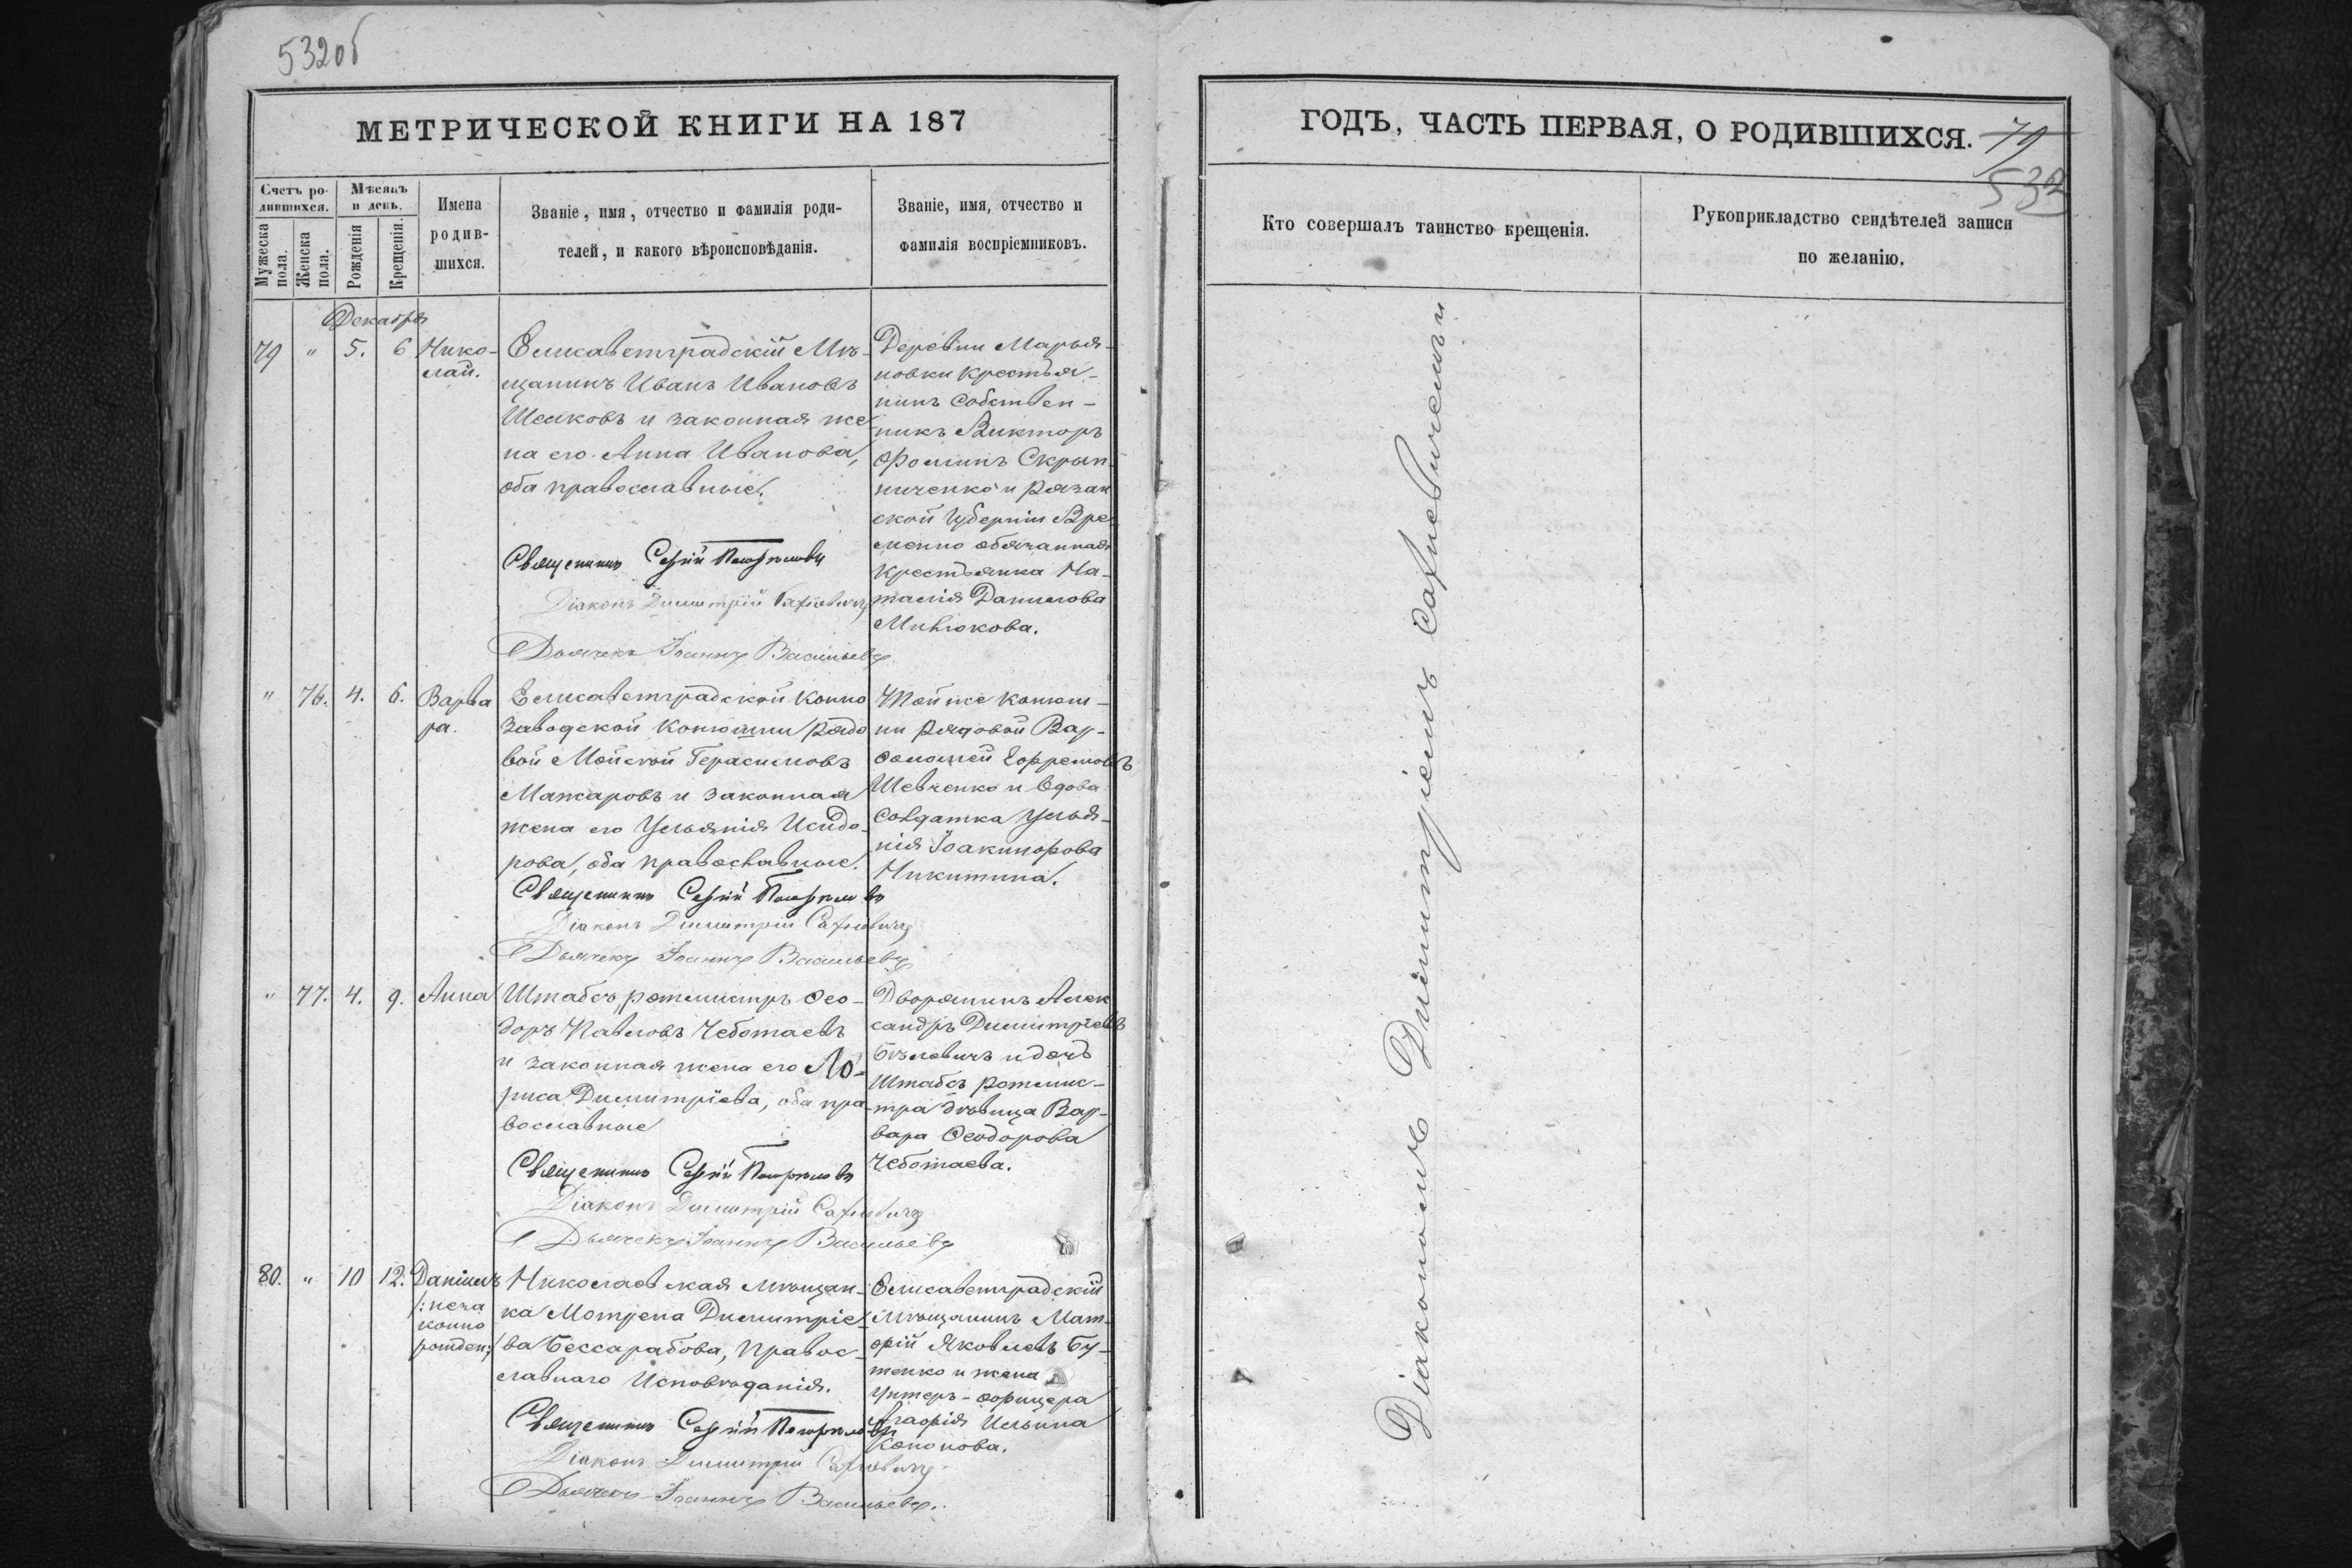 532об
МЕТРИЧЕСКОЙ КНИГИ НА 187
Счетъ ро-
дившихся.
Мужеска
пола.
Женска
пола.
Мѣсяцъ
и день.
Рожденія
Крещенія.
Имена
родив-
шихся.
Званіе, имя, отчество и фамилія роди-
телей, и какого вѣроисповѣданія.
Званіе, имя, отчество и
фамилія воспріемниковъ.
Декабря
79 " 5. 6 Нико-
лай.
Елисаветградскій Мѣ-
щанинъ Иванъ Ивановъ
и законная же-
на его Анна Иванова,
оба православные.
Священникъ Сергій
Діаконъ Димитрій
Дьячекъ Іоаннъ Васильевъ
Деревни Марья-
новки крестья-
нинъ собствен-
никъ Викторъ
Фоминъ Скрып-
ниченко и Рязан
ской Губерніи Вре-
менно обязанная
крестьянка На-
талія Данилова
" 76. 4. 6. Варва
ра.
Елисаветградской конно
заводской конюшни рядо
вой Мойсей Герасимовъ
Мажаровъ и законная
жена его Ульянія Исидо-
рова, оба православные.
Священникъ Сергій
Діаконъ Димитрій
Дьячекъ Іоаннъ Васильевъ
Той же конюш-
ни рядовой Вар-
фоломей Ефремовъ
Шевченко и вдова
солдатка Улья-
нія
Никитина.
" 77. 4. 9. Анна
Штабсъ, ротмистръ Ѳео-
доръ Павловъ Чеботаевъ
и законная жена его Ло-
риса Димитріева, оба пра-
вославные
Священникъ Сергій
Діаконъ Димитрій
Дьячекъ Іоаннъ Васильевъ
Дворянинъ Алек
сандръ Димитріевъ
и дочь
Штабсъ ротмис-
тра дѣвица Вар-
вара Ѳеодорова
Чеботаева.
80. " 10 12. Даніилъ
/:неза
конно
рожден:/
Николаевская мѣщан-
ка Мотрена Димитріе-
ва Бессарабова, Правос-
лавнаго Исповѣданія.
Священникъ Сергій
Діаконъ Димитрій
Дьячекъ Іоаннъ Васильевъ.
Елисаветградскій
Мѣщанинъ Мат-
ѳій Яковлевъ Бу-
тенко и жена
Унтеръ-офицера
Агафія Ильина
Кононова.
ГОДЪ, ЧАСТЬ ПЕРВАЯ, О РОДИВШИХСЯ.
79
532
Кто совершалъ таинство крещенія.
Рукоприкладство свидѣтелей записи
по желанію.
Діакономъ Димитріемъ